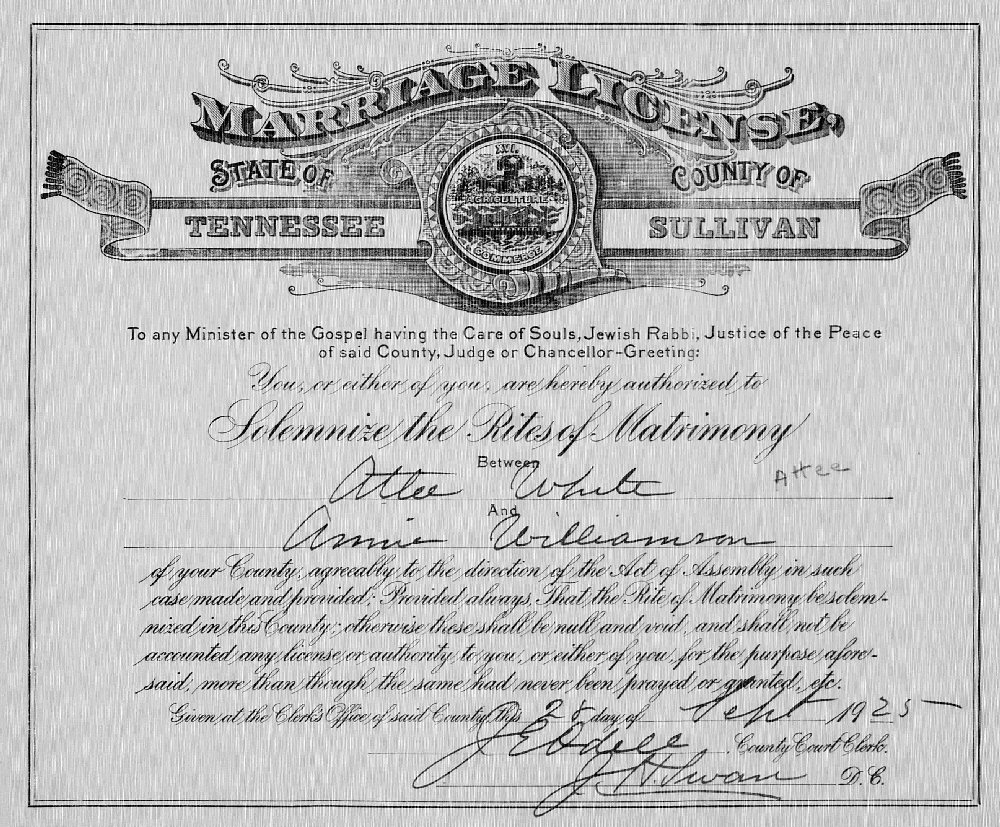 MARRIAGE LICENSE,
STATE OF
COUNTY OF
TENNESSEE
SULLIVAN
XVI.
AGRICULTURE
COMMERCE
To any Minister of the Gospel having the Care of Souls, Jewish Rabbi, Justice of the Peace
of said County, Judge or Chancellor-Greeting:
You, or either of you, are hereby authorized to
Solemnize the Rites of Matrimony
Between
Attee White
Attee
And
Annie Williamson
of your County, agreeably to the direction of the Act of Assembly in such
case made and provided; Provided always, That the Rite of Matrimony be solem-
nized in this County; otherwise these shall be null and void, and shall not be
accounted any license or authority to you, or either of you, for the purpose afore-
said, more than though the same had never been prayed or granted, etc.
Given at the Clerk's Office of said County, this 25 day of Sept 1925
J E Odell County Court Clerk.
J. H. Swan D. C.